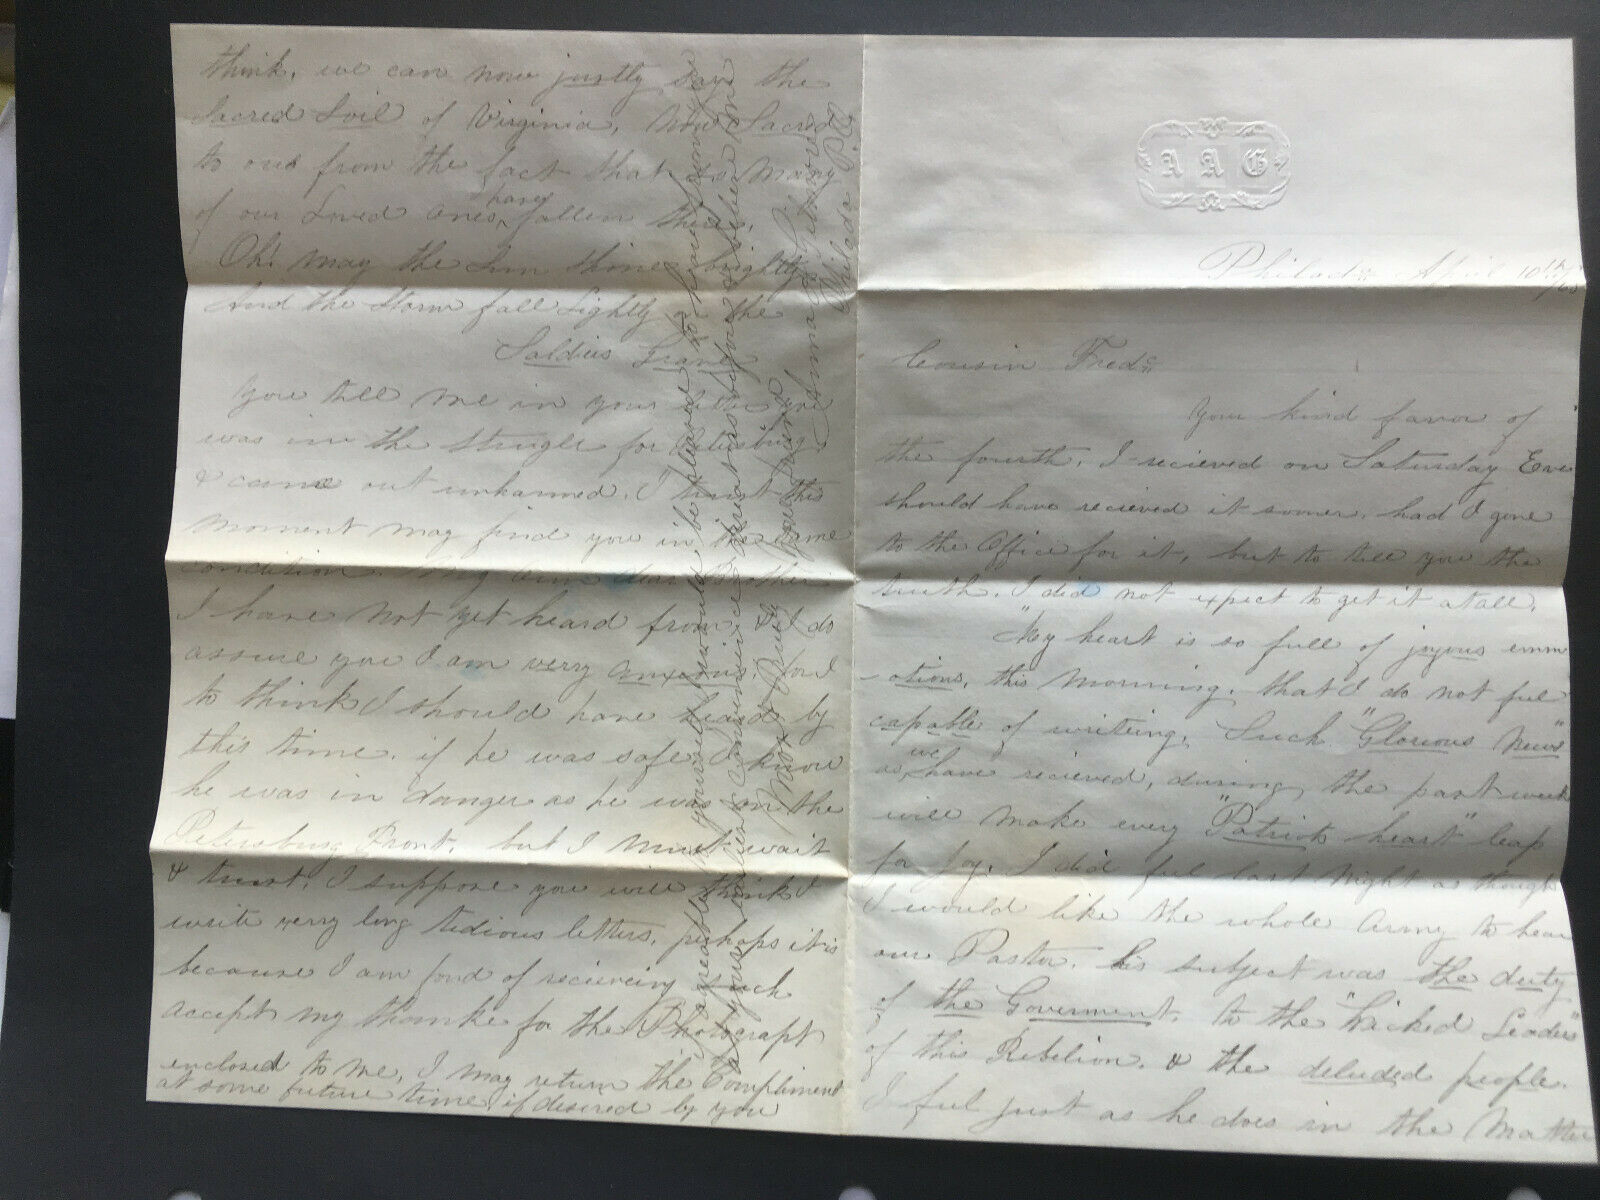 A A G
Philada April 10th /65
Cousin Fred
Your kind favor of
the fourth, I recieved on Saturday Eve
should have recieved it sooner, had I gone
to the Office for it, but to tell you the
truth. I did not expect to get it atall.
"My heart is so full of joyous emm
-otions, this Morning, that I do not feel
capable of writeing, Such "Glorious News"
as we have recieved, during the past week
will make every "Patriots heart" leap
for Joy. I did feel last Night as though
I would like the whole Army to hear
our Pastor. his subject was the duty
of the Goverment, to the "Wicked Leaders"
of this Rebelion. & the deluded people.
I feel just as he does in the Matter
think, we can now justly say the
Sacred Soil of Virginia, Now Sacred
to our from the fact that so Many
of our Loved Ones have fallen there.
Oh! May the Sun Shine brightly
And the Storm fall Lightly on the
Soldiers Grave
You tell Me in your letter you
was in the Struggle for Petersburg
& came out unharmed. I trust this
Moment May find you in the same
condition. My Own dear Brother
I have Not yet heard from & I do
assure you I am verry anxious, for I
to think I should have heard by
this time. if he was safe I know
he was in danger as he was on the
Petersburg Front. but I Must wait
& trust. I suppose you will think I
write verry long tedious letters, perhaps it is
because I am fond of recieveing such
Accept My thanks for the Photograpt
enclosed to Me, I May return the Compliment
at some future time, if desired by you
greatly yourself, would be pleased to hear from you
at your earliest Convenience
Your friend
Anna
Philada Pa